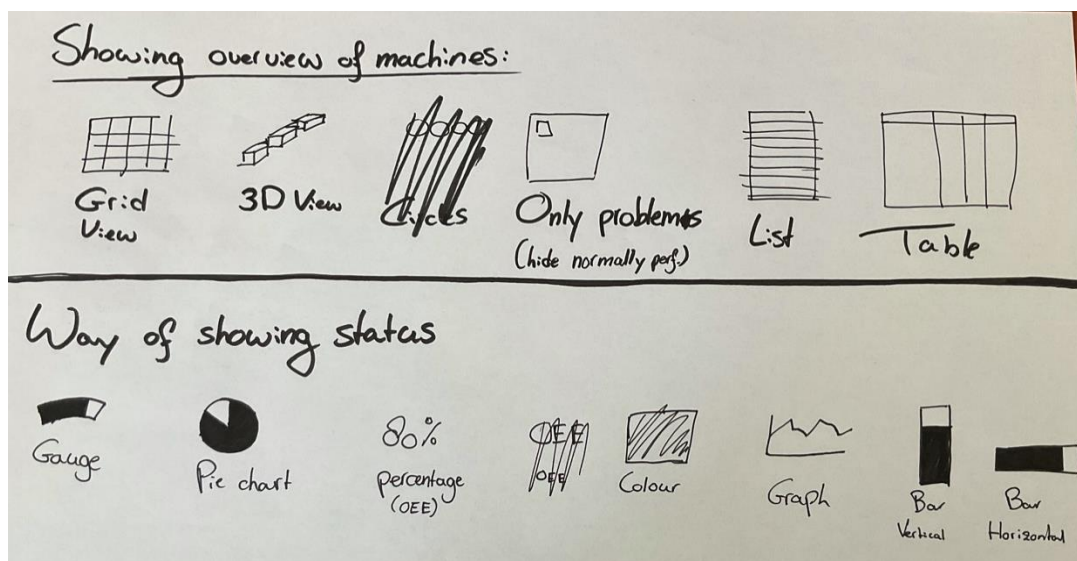 Showing overview of machines:
Grid
View
3D View
Circles
Only problems
(hide normally perf.)
List
Table
Way of showing status
Gauge
Pie chart
80%
percentage
(OEE)
OEE
OEE
Colour
Graph
Bar
Vertical
Bar
Horizontal